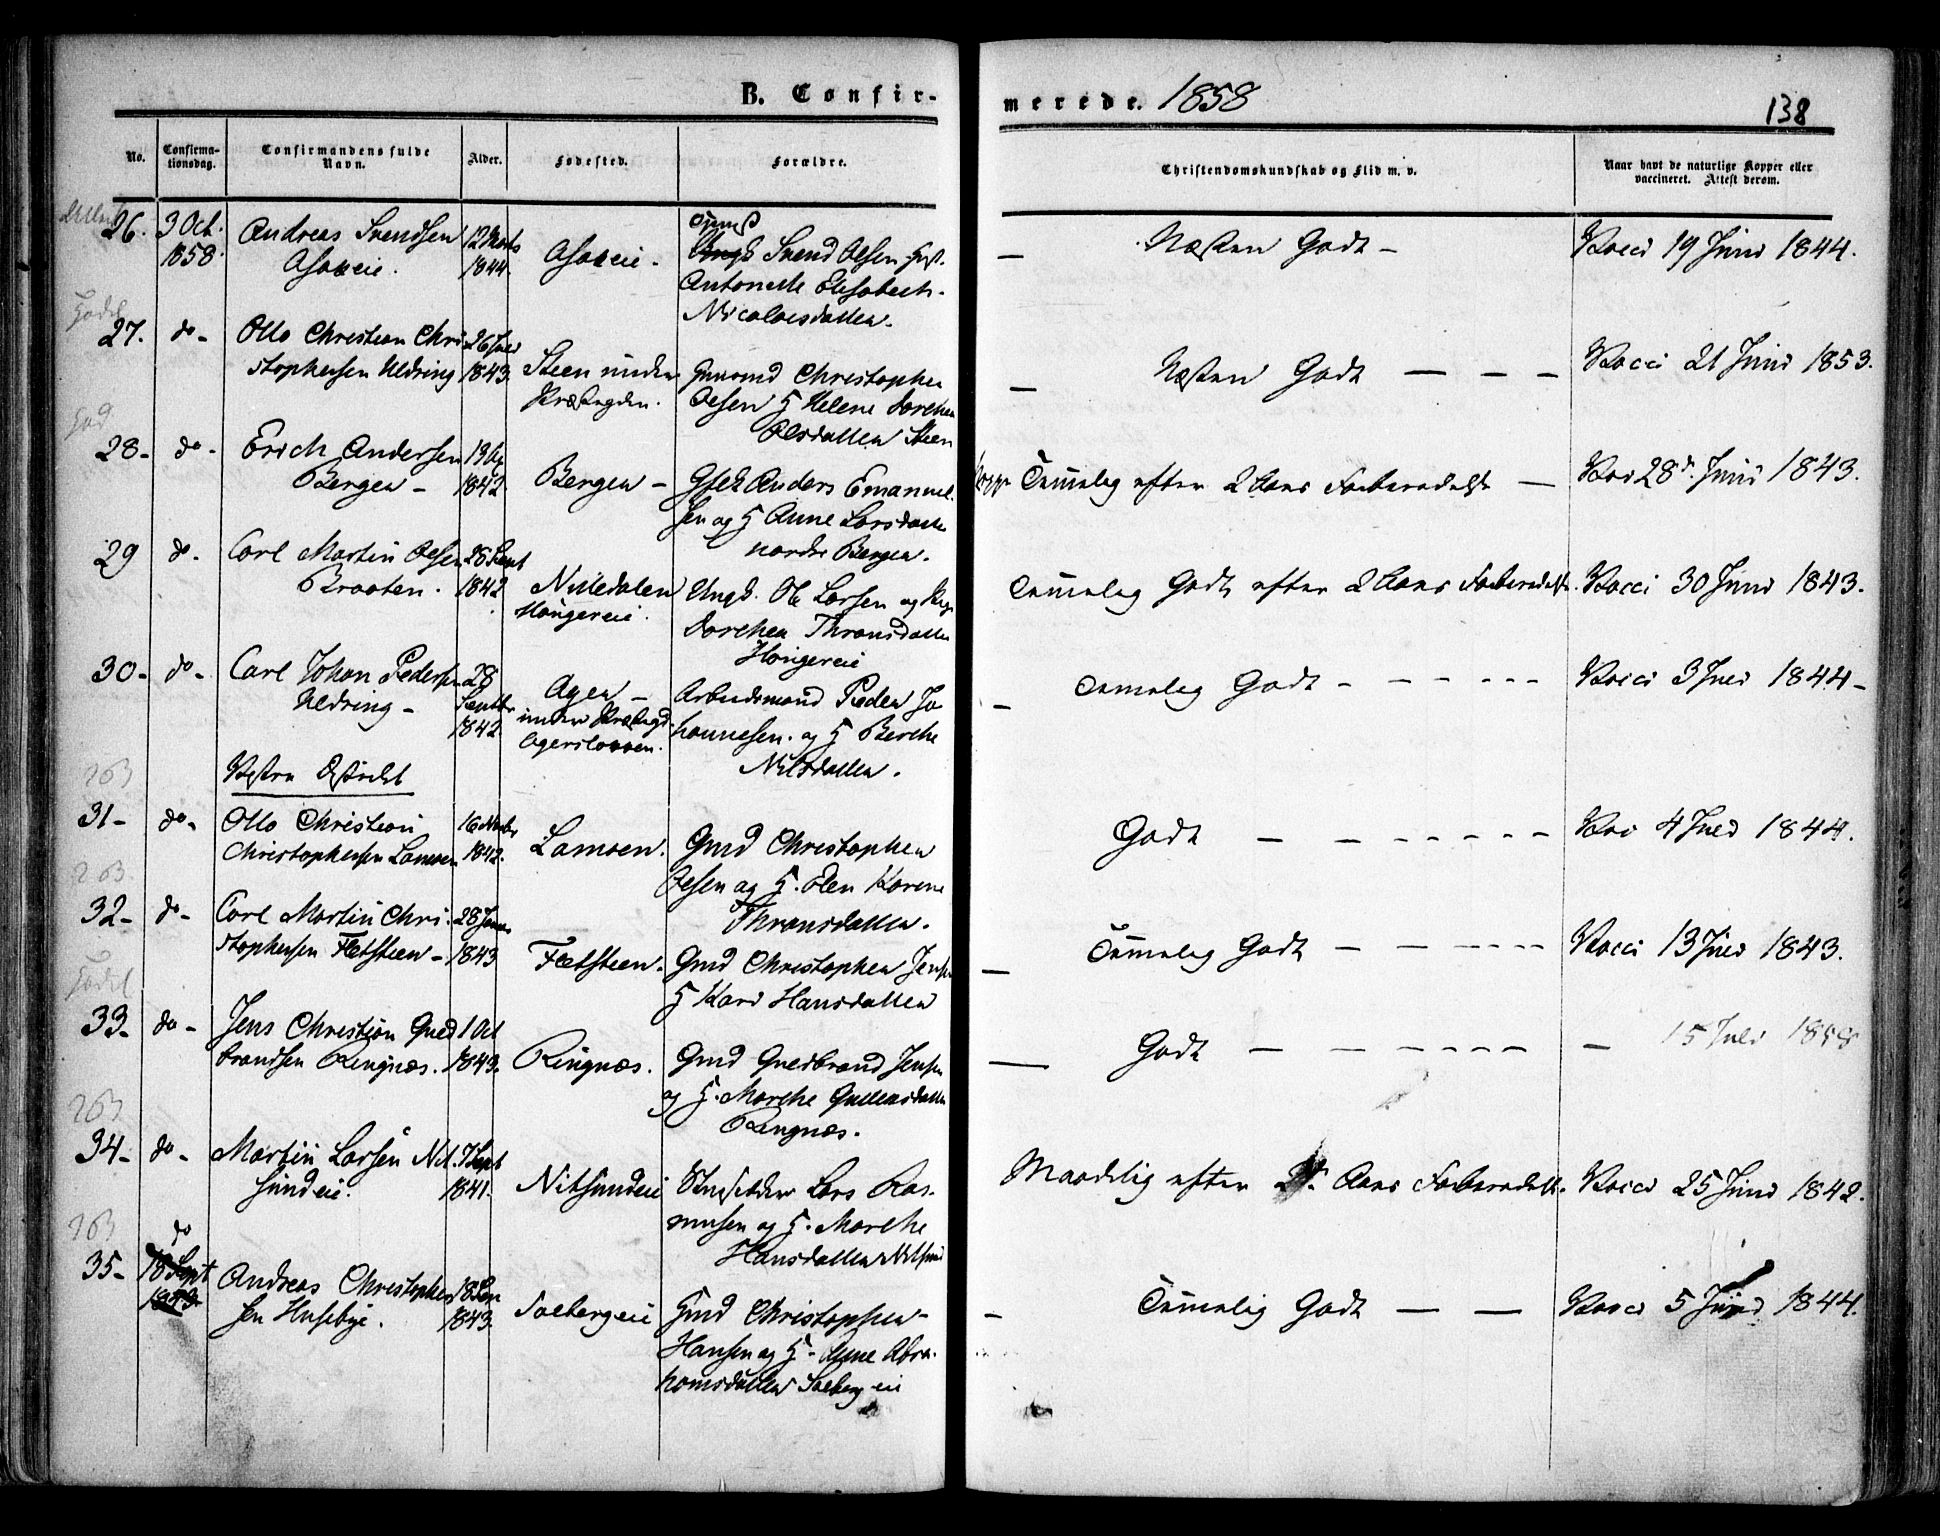 B. Confir-
merede. 1858
138
No.
Confirma-
tionsdag.
Confirmandens fulde
Navn.
Alder.
Fødested.
Forældre.
Christendomskundskab og Flid m. v.
Naar havt de naturlige Kopper eller
vaccineret. Attest derom.
26. 3 Oct. 1858. Andreas Svendsen 12 Marts 1844.
Svend Olsen
Antonette Elisabeth
Nicolaisdatter.
Næsten Godt - Vacci 19 Juni 1844.
27. do - Otto Christian Chri
stophersen Uldring 26 Juli 1843. Steen under
Præstegden. Gmand Christopher
Olsen & Helene Dorthea
Olsdatter Steen
Næsten Godt — — — Vacci 21 Juni 1853.
28 - do - Erich Andersen
Bergen - 1842. Bergen - Anders Emanuel
sen og H Anne Larsdatter
nordre Bergen.
Temmelig efter 2 Aars Forberedelse — Vac 28d. Juni 1843.
29 do. Carl Martin Olsen
Braaten. 28 Sept 1842. Nittedalen
Haugereie. Ungk. Ole Larsen og Pige
Dorthea Thronsdatter
Haugereie
Temmelig Godt efter 2 Aars Forberedelse. Vacci 30 Juni 1843.
30 - do - Carl Johan Pedersen
Uldring - 28 Septbr 1842. Ager -
under Præstegd. Arbeidsmand Peder Jo
hannesen. og H Berthe
Nilsdatter.
Temmelig Godt - - - - - Vacci 3 Juli 1844 -
263
Vestre Distrikt
31 - do - Otto Christian
Christophersen Lamoen 16 Novbr 1842. Lamoen. Gmd Christopher
Olsen og H. Elen Karine
Thronsdatter.
Godt — - - - - - Vac 4 Juli 1844.
263
32 - do - Carl Martin Chri-
stophersen Fletsteen - 28 Januar 1843 Fletsteen. Gmd Christopher Jensen
H Kari Hansdatter
Temmelig Godt - - - - - Vacci 13 Juli 1843.
33 - do - Jens Christian Guld
brandsen Ringnæs. 1 Oct 1843. Ringnæs. Gmd Guldbrand Jensen
og H. Marthe Gulliksdatter
Ringnæs.
Godt — - - - - - 15 Juli 1858
263
34 - do - Martin Larsen Nit-
sundeie. 7 Sept 1841. Nitsundeie Lars Ras-
musen og H. Marthe
Hansdatter Nitsund
Maadelig efter 2 Aars Forberedelse. Vacci 25 Juni 1842.
263
35 - do 18 Sept 1843 Andreas Christopher
sen Husebye. 18 Sep 1843. Solbergeie Gmd Christopher
Hansen og H - Anne Abra-
hamsdatter Solbergeie
Temmelig Godt — — Vacci 5 Juni 1844.